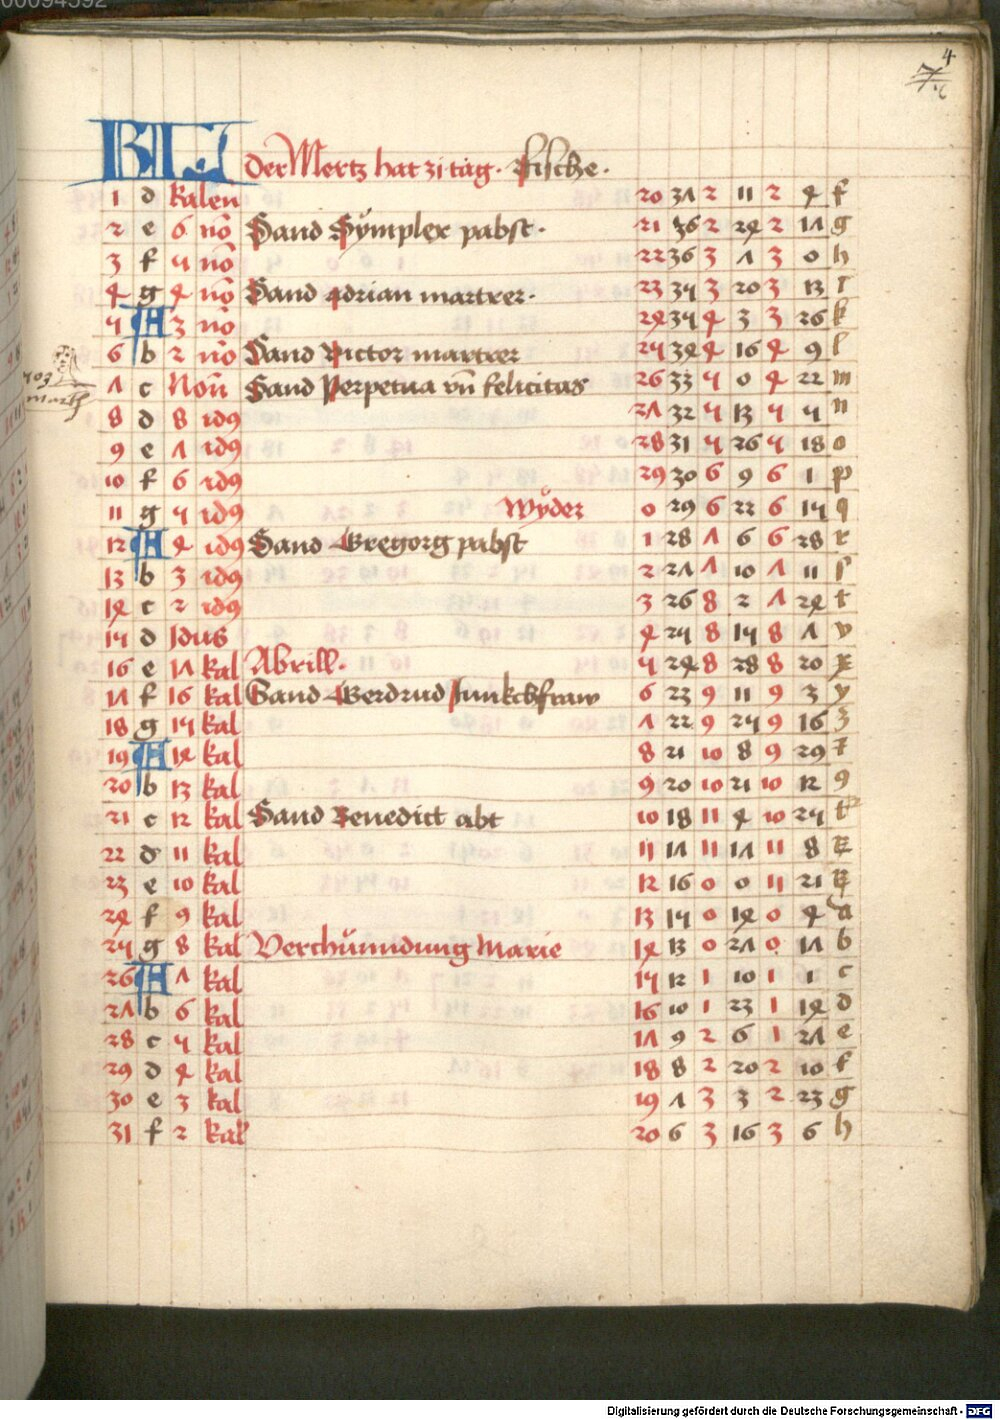 00094592
4
7.c
KL der Mertz hat 31 tag. Fische.
1 d kalen 20 37 2 11 2 4 f
2 e 6 no Sand Sÿmplex pabst. 21 36 2 24 2 17 g
3 f 5 no 22 36 3 7 3 0 h
4 g 4 no Sand Adrian martrer. 23 35 3 20 3 13 i
5 A 3 no 24 35 4 3 3 26 k
6 b 2 no Sand Victor martrer 25 34 4 16 4 9 l
7 c Non Sand Perpetua vn felicitas 26 33 5 0 4 22 m
8 d 8 idus 27 32 5 13 5 5 n
9 e 7 idus 28 31 5 26 5 18 o
10 f 6 idus 29 30 6 9 6 1 p
11 g 5 idus Wÿder 0 29 6 22 6 15 q
12 A 4 idus Sand Gregorg pabst 1 28 7 6 6 28 r
13 b 3 idus 2 27 7 10 7 11 s
14 c 2 idus 3 26 8 2 7 24 t
15 d Idus 4 25 8 15 8 7 v
16 e 17 kal Abrill. 5 24 8 28 8 20 x
17 f 16 kal Sand Gerdrud Junckchfraw 6 23 9 11 9 3 y
18 g 15 kal 7 22 9 25 9 16 z
19 A 14 kal 8 21 10 8 9 29
20 b 13 kal 9 20 10 21 10 12 9
21 c 12 kal Sand Benedict abt 10 18 11 4 10 25
22 d 11 kal 11 17 11 17 11 8
23 e 10 kal 12 16 0 0 11 21
24 f 9 kal 13 15 0 14 0 4 a
25 g 8 kal Verchündung Marie 14 13 0 27 0 17 b
26 A 7 kal 15 12 1 10 1 1 c
27 b 6 kal 16 10 1 23 1 14 d
28 c 5 kal 17 9 2 6 1 27 e
29 d 4 kal 18 8 2 20 2 10 f
30 e 3 kal 19 7 3 3 2 23 g
31 f 2 kal 20 6 3 16 3 6 h
Digitalisierung gefördert durch die Deutsche Forschungsgemeinschaft - DFG